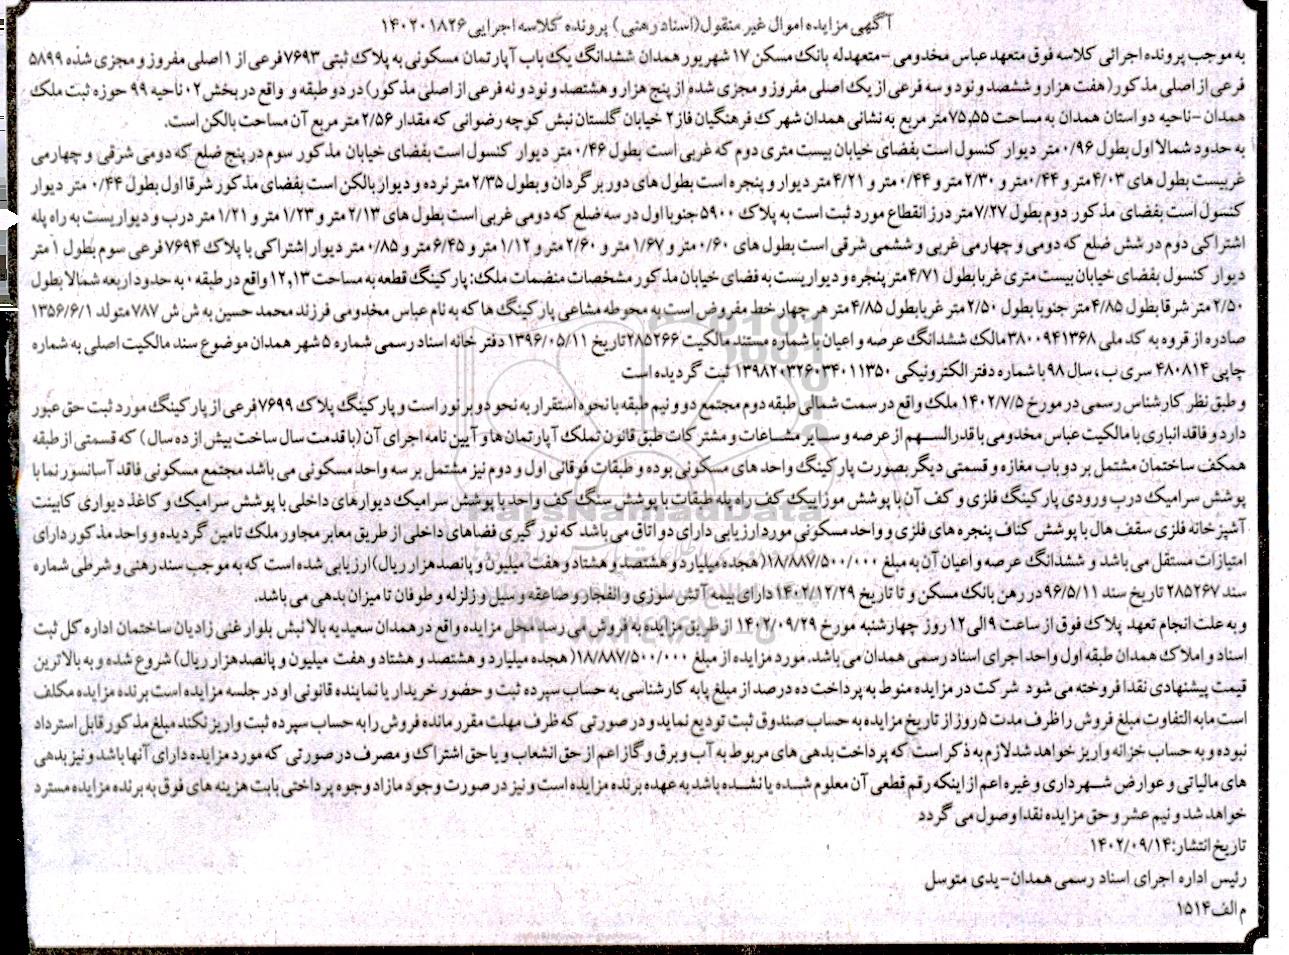 آگهی مزایده اموال غیر منقول(اسناد رهنی) پرونده کلاسه اجرایی ۱۴۰۲۰۱۸۲۶
به موجب پرونده اجرائی کلاسه فوق متعهد عباس مخدومی -متعهدله بانک مسکن ۱۷ شهریور همدان ششدانگ یک باب آپارتمان مسکونی به پلاک ثبتی ۷۶۹۳فرعی از ۱ اصلی مفروز و مجزی شده ۵۸۹۹
فرعی از اصلی مذکور( هفت هزار و ششصد و نود و سه فرعی از یک اصلی مفروز و مجزی شده از پنج هزار و هشتصد و نود و نه فرعی از اصلی مذکور) در دو طبقه و واقع در بخش ۰۲ ناحیه ۹۹ حوزه ثبت ملک
همدان -ناحیه دو استان همدان به مساحت ۷۵,۵۵متر مربع به نشانی همدان شهرک فرهنگیان فاز۲ خیابان گلستان نبش کوچه رضوانی که مقدار ۲/۵۶ متر مربع آن مساحت بالکن است.
به حدود شمالا اول بطول ۰/۹۶ متر دیوار کنسول است بفضای خیابان بیست متری دوم که غربی است بطول ۰/۴۶ متر دیوار کنسول است بفضای خیابان مذکور سوم در پنج ضلع که دومی شرقی و چهارمی
غربیست بطول های ۴/۰۳ متر و ۰/۴۴متر و ۲/۳۰ متر و ۰/۴۴ متر و ۴/۲۱ متر دیوار و پنجره است بطول های دور بر گردان و بطول ۲/۳۵ متر نرده و دیوار بالکن است بفضای مذکور شرقا اول بطول ۰/۴۴ متر دیوار
کنسول است بفضای مذکور دوم بطول ۷/۲۷متر درز انقطاع مورد ثبت است به پلاک ۵۹۰۰ جنوبا اول در سه ضلع که دومی غربی است بطول های ۲/۱۳ متر و ۱/۲۳ متر و ۱/۲۱ متر درب و دیواریست به راه پله
اشتراکی دوم در شش ضلع که دومی و چهارمی غربی و ششمی شرقی است بطول های ۰/۶۰ متر و ۱/۶۷ متر و ۲/۶۰ متر و ۱/۱۲ متر و ۶/۴۵متر و ۰/۸۵ متر دیوار اشتراکی با پلاک ۷۶۹۴ فرعی سوم بطول ۱ متر
دیوار کنسول بفضای خیابان بیست متری غربا بطول ۴/۷۱متر پنجره و دیواریست به فضای خیابان مذکور مشخصات منضمات ملک: پارکینگ قطعه به مساحت ۱۲,۱۳ واقع در طبقه ۰ به حدود اربعه شمالا بطول
۲/۵۰ متر شرقا بطول ۴/۸۵متر جنوبا بطول ۲/۵۰ متر غربا بطول ۴/۸۵متر هر چهار خط مفروض است به محوطه مشاعی پارکینگ ها که به نام عباس مخدومی فرزند محمد حسین به ش ش ۷۸۷متولد ۱۳۵۶/۶/۱
صادره از قروه به کد ملی ۳۸۰۰۹۴۱۳۶۸مالک ششدانگ عرصه و اعیان با شماره مستند مالکیت ۲۸۵۲۶۶تاریخ ۱۳۹۶/۰۵/۱۱ دفتر خانه اسناد رسمی شماره ۵ شهر همدان موضوع سند مالکیت اصلی به شماره
چاپی ۴۸۰۸۱۴ سری ب ، سال ۹۸ با شماره دفتر الکترونیکی ۱۳۹۸۲۰۳۲۶۰۳۴۰۱۱۳۵۰ ثبت گردیده است
و طبق نظر کارشناس رسمی در مورخ ۱۴۰۲/۷/۵ ملک واقع در سمت شمالی طبقه دوم مجتمع دو و نیم طبقه با نحوه استقرار به نحو دو بر نور است و پارکینگ پلاک ۷۶۹۹فرعی از پارکینگ مورد ثبت حق عبور
دارد و فاقد انباری با مالکیت عباس مخدومی با قدرالسهم از عرصه و سایر مشاعات و مشترکات طبق قانون تملک آپارتمان ها و آیین نامه اجرای آن (با قدمت سال ساخت بیش از ده سال) که قسمتی از طبقه
همکف ساختمان مشتمل بر دو باب مغازه و قسمتی دیگر بصورت پارکینگ واحد های مسکونی بوده و طبقات فوقانی اول و دوم نیز مشتمل بر سه واحد مسکونی می باشد مجتمع مسکونی فاقد آسانسور نما با
پوشش سرامیک درب ورودی پارکینگ فلزی و کف آن با پوشش موزاییک کف راه پله طبقات با پوشش سنگ کف واحد با پوشش سرامیک دیوارهای داخلی با پوشش سرامیک و کاغذ دیواری کابینت
آشپزخانه فلزی سقف هال با پوشش کناف پنجره های فلزی و واحد مسکونی مورد ارزیابی دارای دو اتاق می باشد که نور گیری فضاهای داخلی از طریق معابر مجاور ملک تامین گردیده و واحد مذکور دارای
امتیازات مستقل می باشد و ششدانگ عرصه و اعیان آن به مبلغ ۱۸/۸۸۷/۵۰۰/۰۰۰(هجده میلیارد و هشتصد و هشتاد و هفت میلیون و پانصدهزار ریال)ارزیابی شده است که به موجب سند رهنی و شرطی شماره
سند ۲۸۵۲۶۷ تاریخ سند ۹۶/۵/۱۱ در رهن بانک مسکن و تا تاریخ ۱۴۰۲/۱۲/۲۹ دارای بیمه آتش سوزی و انفجار و صاعقه و سیل و زلزله و طوفان تا میزان بدهی می باشد.
و به علت انجام تعهد پلاک فوق از ساعت ۹ الی ۱۲ روز چهارشنبه مورخ ۱۴۰۲/۰۹/۲۹ از طریق مزایده به فروش می رسد محل مزایده واقع در همدان سعیدیه بالا نبش بلوار غنی زادیان ساختمان اداره کل ثبت
اسناد و املاک همدان طبقه اول واحد اجرای اسناد رسمی همدان می باشد. مورد مزایده از مبلغ ۱۸/۸۸۷/۵۰۰/۰۰۰(هجده میلیارد و هشتصد و هشتاد و هفت میلیون و پانصدهزار ریال) شروع شده و به بالاترین
قیمت پیشنهادی نقدا فروخته می شود شرکت در مزایده منوط به پرداخت ده درصد از مبلغ پایه کارشناسی به حساب سپرده ثبت و حضور خریدار یا نماینده قانونی او در جلسه مزایده است برنده مزایده مکلف
است مابه التفاوت مبلغ فروش را ظرف مدت ۵ روز از تاریخ مزایده به حساب صندوق ثبت تودیع نماید و در صورتی که ظرف مهلت مقرر مانده فروش را به حساب سپرده ثبت واریز نکند مبلغ مذکور قابل استرداد
نبوده و به حساب خزانه واریز خواهد شد لازم به ذکر است که پرداخت بدهی های مربوط به آب و برق و گاز اعم از حق انشعاب و یا حق اشتراک و مصرف در صورتی که مورد مزایده دارای آنها باشد و نیز بدهی
های مالیاتی و عوارض شهرداری و غیره اعم از اینکه رقم قطعی آن معلوم شده یا نشده باشد به عهده برنده مزایده است و نیز در صورت وجود مازاد وجوه پرداختی بابت هزینه های فوق به برنده مزایده مسترد
خواهد شد و نیم عشر و حق مزایده نقدا وصول می گردد
تاریخ انتشار: ۱۴۰۲/۰۹/۱۴
رئیس اداره اجرای اسناد رسمی همدان-یدی متوسل
م الف ۱۵۱۴
ParsNamadData